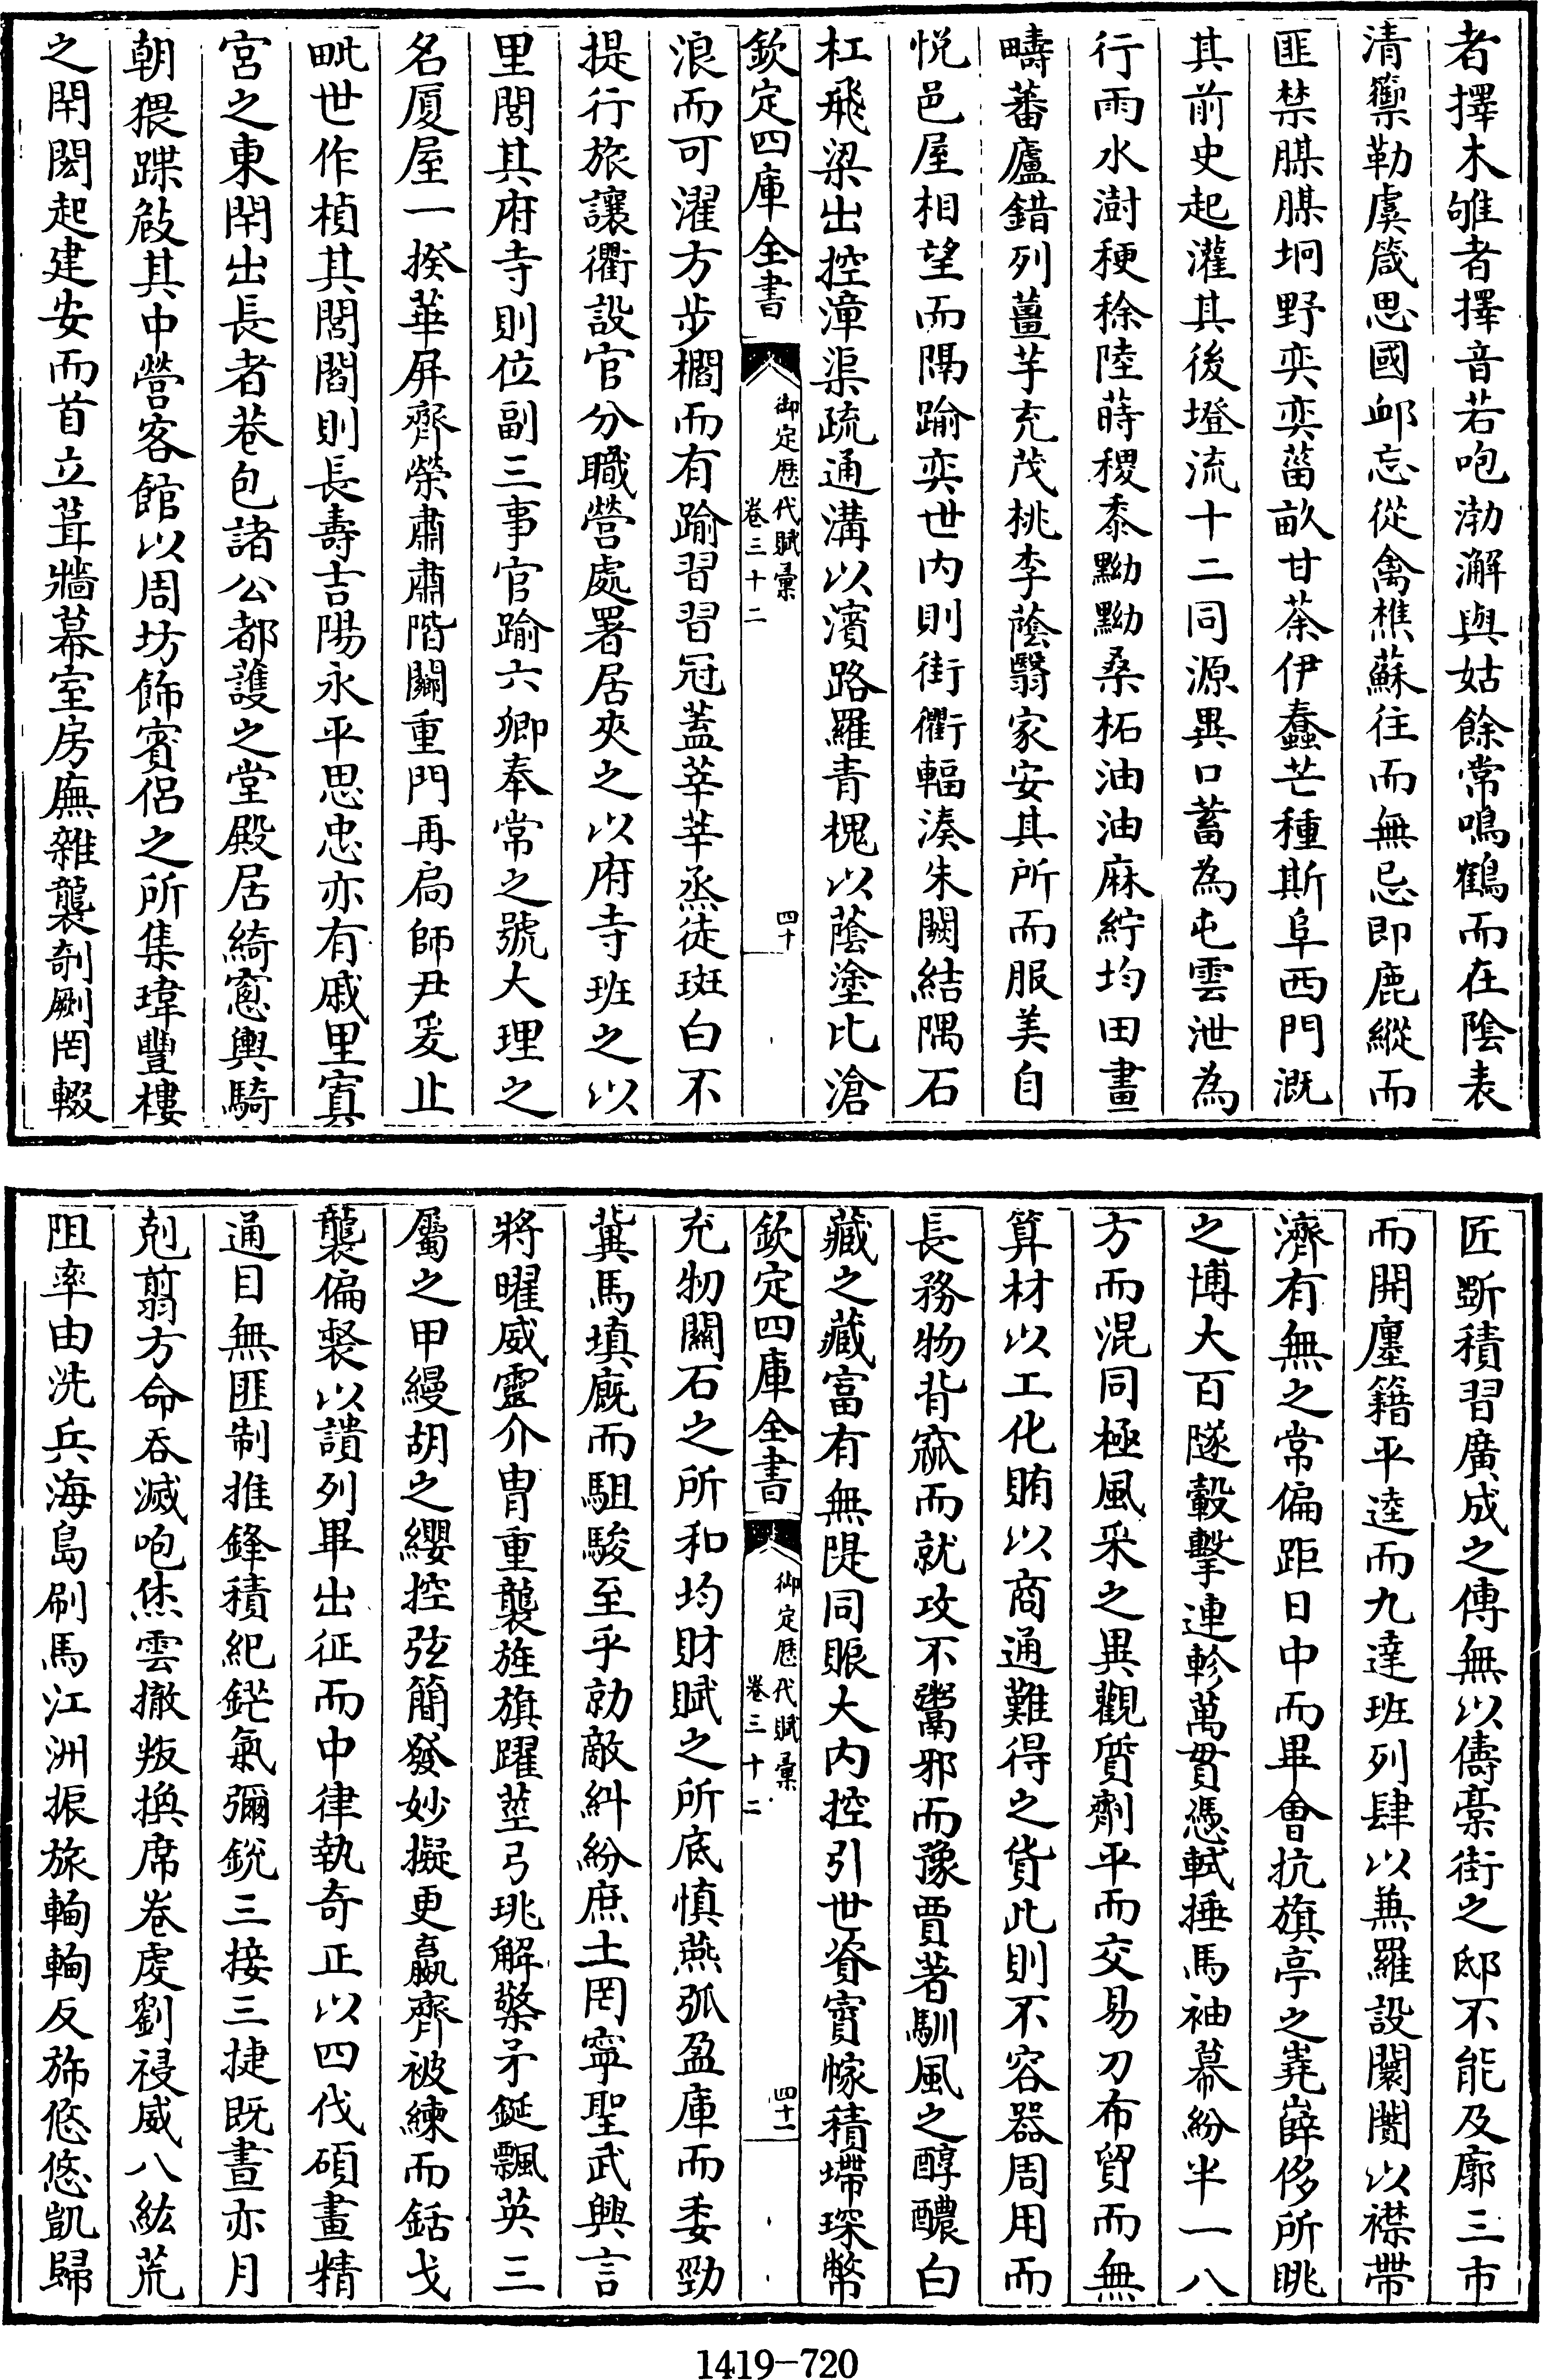 者擇木雊者擇音若咆渤澥與姑餘常鳴鶴而在隂表
清籞勒虞箴思國䘏忘從禽樵蘇往而無忌即鹿縱而
匪禁腜腜坰野奕奕菑畝甘荼伊蠢芒種斯阜西門溉
其前史起灌其後墱流十二同源異口蓄為屯雲泄為
行雨水澍稉稌陸蒔稷黍黝黝桑柘油油麻紵均田畫
疇蕃廬錯列薑芋充茂桃李蔭翳家安其所而服美自
悦邑屋相望而隔踰奕世内則街衢輻湊朱闕結隅石
杠飛梁出控漳渠疏通溝以濱路羅青槐以蔭塗比滄
欽定四庫全書
御定歴代賦彚
卷三十二
四十
浪而可濯方步櫩而有踰習習冠蓋莘莘烝徒斑白不
提行旅讓衢設官分職營處署居夾之以府寺班之以
里閭其府寺則位副三事官踰六卿奉常之號大理之
名厦屋一揆華屏齊榮肅肅階䦳重門再扃師尹爰止
毗世作楨其閭閻則長壽吉陽永平思忠亦有戚里寘
宮之東閈出長者巷包諸公都護之堂殿居綺窻輿騎
朝猥蹀㪃其中營客館以周坊飾賓侶之所集瑋豐樓
之閈閎起建安而首立葺牆幕室房廡雜襲剞劂罔輟
匠斲積習廣成之傳無以儔槀街之邸不能及廓三市
而開廛籍平逵而九達班列肆以兼羅設闤闠以襟帶
濟有無之常偏距日中而畢會抗旗亭之嶤嶭侈所眺
之博大百隧轂擊連軫萬貫憑軾捶馬袖幕紛半一八
方而混同極風采之異觀質劑平而交易刀布貿而無
算材以工化賄以商通難得之貨此則不容器周用而
長務物背窳而就攻不鬻邪而豫賈著馴風之醇醲白
藏之藏富有無隄同賑大内控引世資賨幏積墆琛幣
欽定四庫全書
御定歴代賦彚
卷三十二
四十一
充牣關石之所和均財賦之所底慎燕弧盈庫而委勁
冀馬填廐而駔駿至乎勍敵糾紛庶土罔寧聖武興言
將曜威靈介胄重襲旌旗躍莖弓珧解檠矛鋋飄英三
屬之甲縵胡之纓控弦簡發妙擬更嬴齊被練而銛戈
襲偏裻以讀列畢出征而中律執奇正以四伐碩畫精
通目無匪制推鋒積紀鋩氣彌銳三接三捷既晝亦月
剋翦方命吞滅咆烋雲撤叛換席卷虔劉祲威八紘荒
阻率由洗兵海島刷馬江洲振旅輷輷反斾悠悠凱歸
1419-720